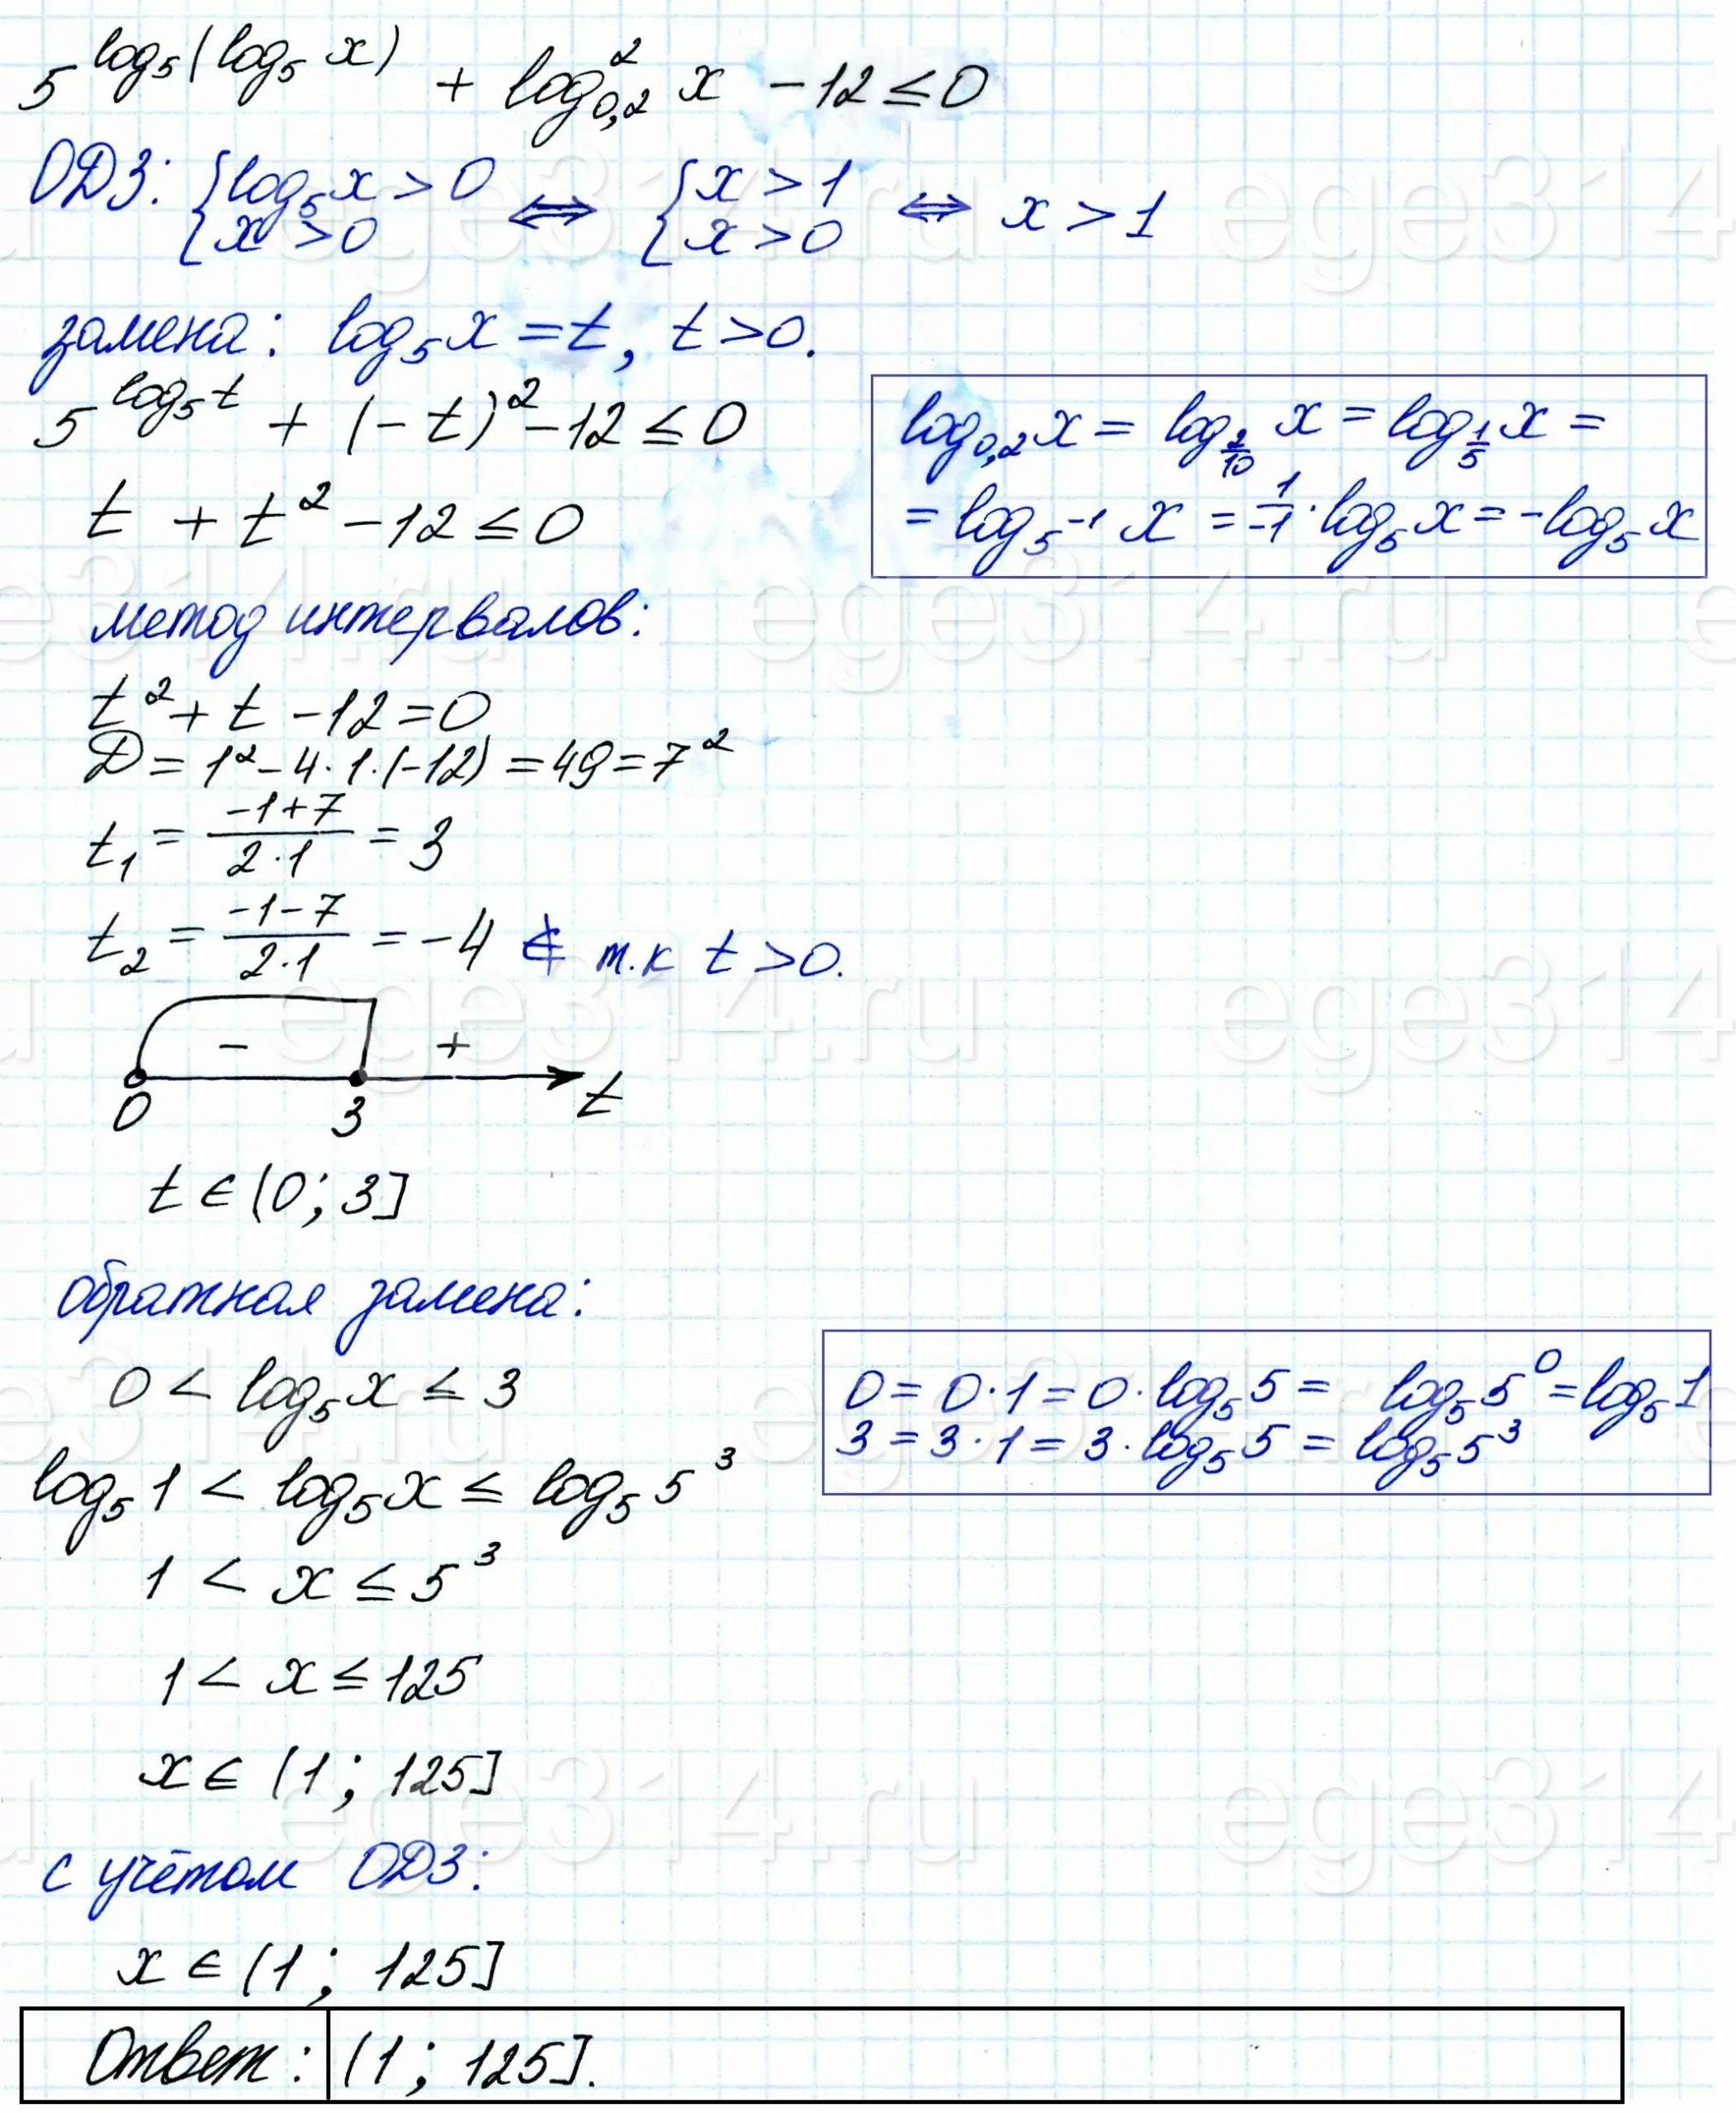 5^{log₅(log₅x)} + log²₀,₂ x − 12 ≤ 0
ОДЗ: { log₅x > 0 ; x > 0 ⇔ { x > 1 ; x > 0 ⇔ x > 1
замена: log₅x = t, t > 0.
5^{log₅t} + (−t)² − 12 ≤ 0
log₀,₂x = log_{2/10} x = log_{1/5} x =
= log_{5⁻¹} x = 1/−1 · log₅x = −log₅x
t + t² − 12 ≤ 0
метод интервалов:
t² + t − 12 = 0
D = 1² − 4·1·(−12) = 49 = 7²
t₁ = (−1+7)/(2·1) = 3
t₂ = (−1−7)/(2·1) = −4 ∉ т.к t > 0.
− +
0 3 t
t ∈ (0; 3]
обратная замена:
0 < log₅x ≤ 3
0 = 0·1 = 0·log₅5 = log₅5⁰ = log₅1
3 = 3·1 = 3·log₅5 = log₅5³
log₅1 < log₅x ≤ log₅5³
1 < x ≤ 5³
1 < x ≤ 125
x ∈ (1; 125]
с учётом ОДЗ:
x ∈ (1; 125]
Ответ: (1; 125].
ege314.ru